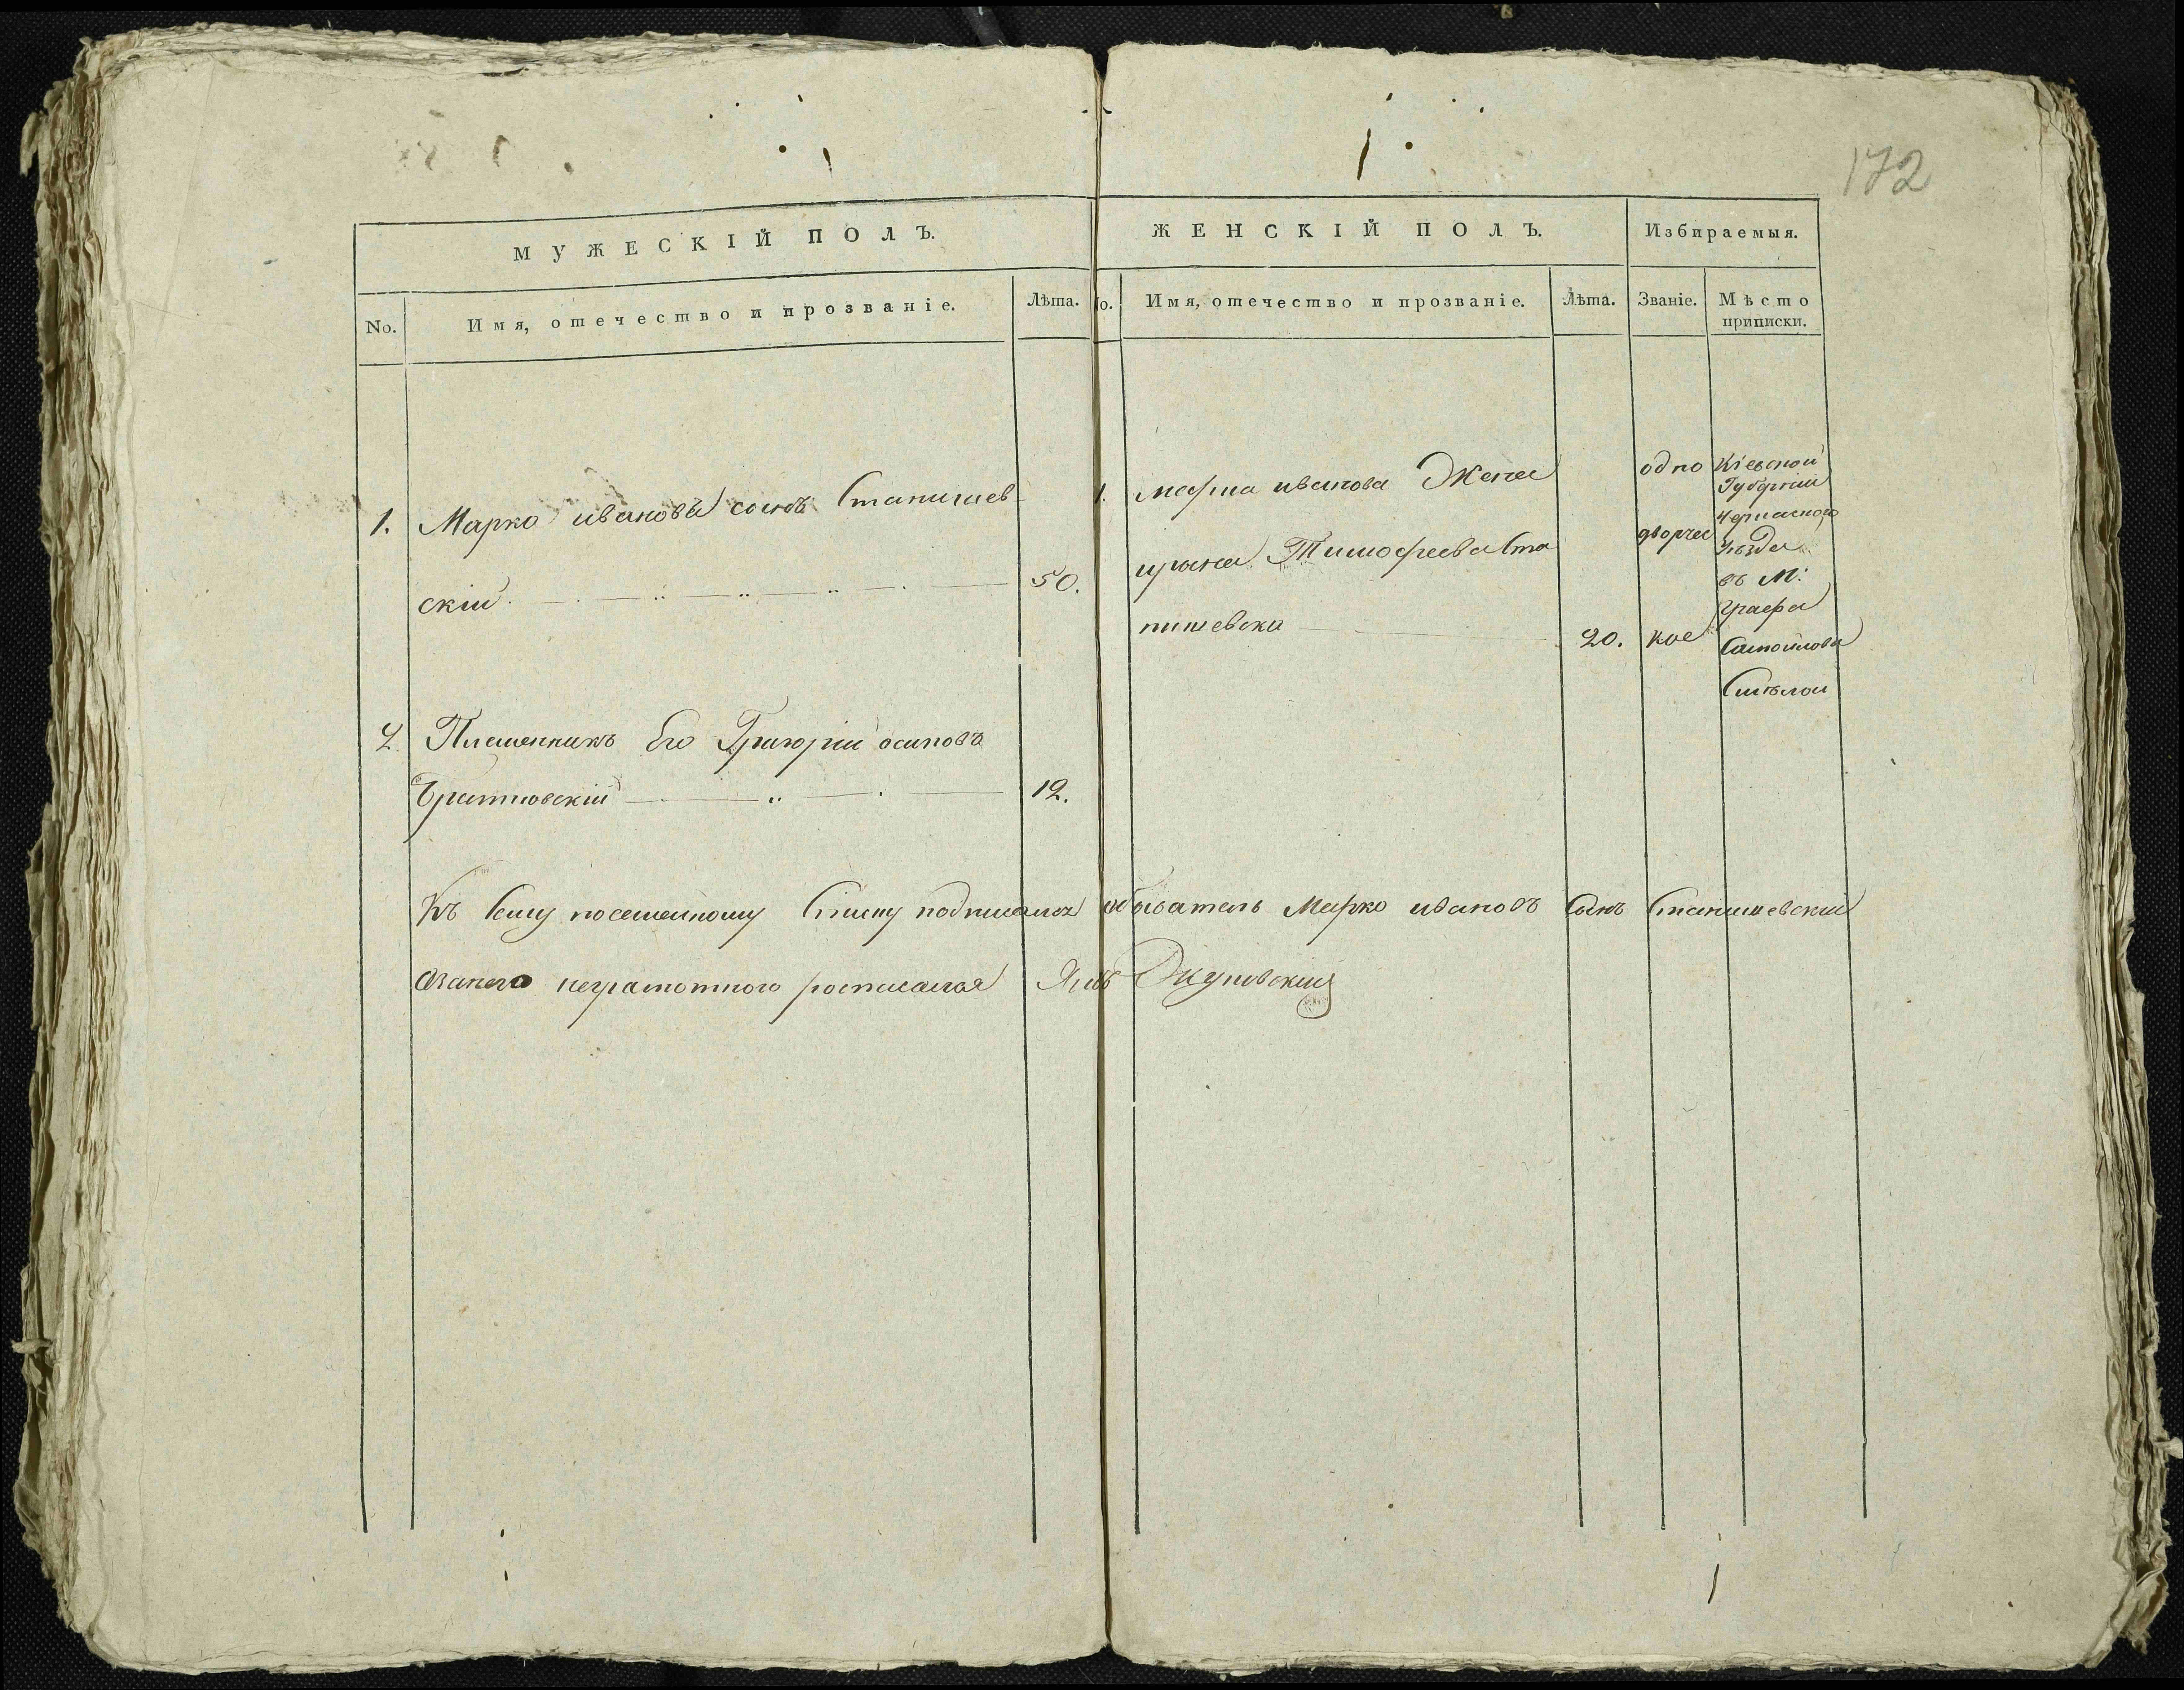 172
МУЖЕСКІЙ ПОЛЪ.
ЖЕНСКІЙ ПОЛЪ.
Избираемыя.
No.
Имя, отечество и прозваніе.
Лѣта.
No.
Имя, отечество и прозваніе.
Лѣта.
Званіе.
Мѣсто
приписки.
1. Марко ивановъ сынъ Станишев
скій 50.
1. марка иванова Жена
ирина Тимофеева Ста
нишевска 20.
одно
дворчес
кое
Кіевской
Губерніи
Черкаского
уѣзда
въ М:
графа
Самойлова
Смѣлой
2. Племенникъ Его Григорій осиповъ
12.
Къ Сему посемейному Списку подписался обыватель Марко ивановъ Сынъ Станишевскій
Азанего неграмотного росписался Янъ